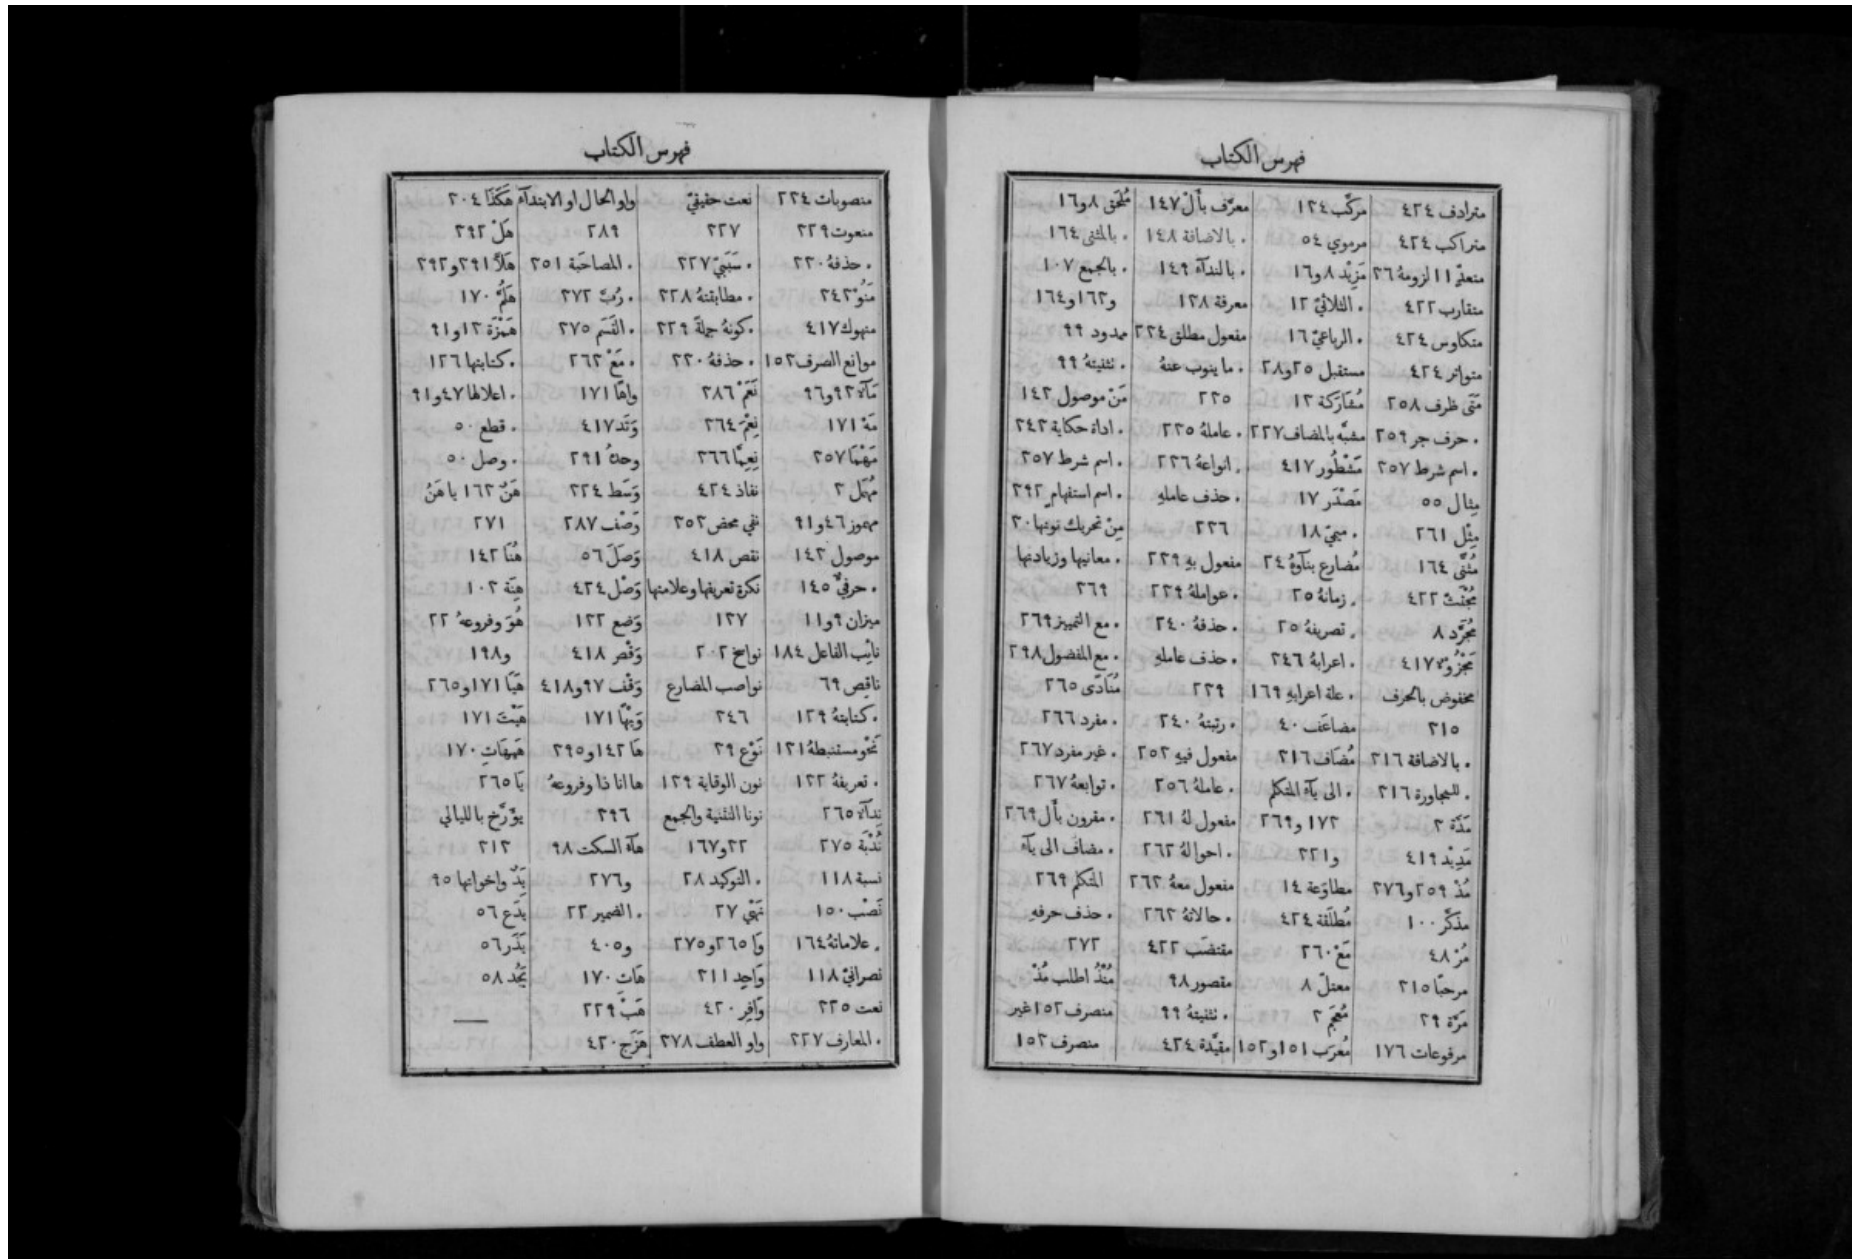 فهرس الكتاب
مترادف ٤٢٤
متراكب ٤٢٤
متعدٍّ ١١ لزومهُ ٢٦
متقارب ٤٢٢
متكاوس ٤٢٤
متواتر ٤٢٤
مَتَى ظرف ٢٥٨
. حرف جر ٢٥٩
. اسم شرط ٢٥٧
مِثال ٥٥
مِثْل ٢٦١
مُثَنَّى ١٦٤
مُجْتَثّ ٤٢٢
مُجَرَّد ٨
مَجْزُوء ٤١٧
مخفوض بالحرف
٢١٥
. بالاضافة ٢١٦
. للمجاورة ٢١٦
مَدَّة ٢
مَدِيْد ٤١٩
مُذْ ٢٥٩ و٢٧٦
مذكَّر ١٠٠
مُرْ ٤٨
مرحبًا ٢١٥
مَرَّة ٢٩
مرفوعات ١٧٦
مركَّب ١٢٤
مرموي ٥٤
مَزِيْد ٨ و١٦
. الثلاثيّ ١٢
. الرباعيّ ١٦
مستقبل ٢٥ و٢٨
مُشَارَكة ١٢
مشبَّه بالمضاف ٢٢٧
مَشْطُور ٤١٧
مَصْدَر ١٧
. ميميّ ١٨
مُضارع بنآؤهُ ٢٤
. زمانهُ ٢٥
. تصريفهُ ٢٥
. اعرابهُ ٢٤٦
. علة اعرابهِ ١٦٩
مضاعَف ٤٠
مُضَاف ٢١٦
. الى يآء المتكلم
١٧٢ و٢٦٩
و٢٢١
مطاوَعة ١٤
مُطلَقة ٤٢٤
مَعْ ٢٦٠
معتلّ ٨
مُعجَم ٢
مُعرَب ١٥١ و١٥٢
معرَّف بأَلْ ١٤٧
. بالاضافة ١٤٨
. بالندآء ١٤٩
معرفة ١٢٨
مفعول مطلق ٢٢٤
. ما ينوب عنهُ
٢٢٥
. عاملهُ ٢٢٥
. انواعهُ ٢٢٦
. حذف عاملهِ
٢٢٦
مفعول بهِ ٢٢٩
. عواملهُ ٢٢٩
. حذفهُ ٢٤٠
. حذف عاملهِ
٢٢٩
. رتبتهُ ٢٤٠
مفعول فيهِ ٢٥٢
. عاملهُ ٢٥٦
مفعول لهُ ٢٦١
. احوالهُ ٢٦٢
مفعول معهُ ٢٦٢
. حالاتهُ ٢٦٢
مقتضَب ٤٢٢
مقصور ٩٨
. تثنيتهُ ٩٩
مقيَّدة ٤٢٤
مُلحَق ٨ و١٦
. بالمثنى ١٦٤
. بالجمع ١٠٧
و١٦٢ و١٦٤
ممدود ٩٩
. تثنيتهُ ٩٩
مَنْ موصول ١٤٢
. اداة حكاية ٢٤٢
. اسم شرط ٢٥٧
. اسم استفهام ٢٩٢
مِنْ تحريك نونها ٢٠
. معانيها وزيادتها
٢٦٩
. مع التمييز ٢٦٩
. مع المفضول ٢٩٨
مُنَادًى ٢٦٥
. مفرد ٢٦٦
. غير مفرد ٢٦٧
. توابعهُ ٢٦٧
. مقرون بأَل ٢٦٩
. مضاف الى يآء
المتكلم ٢٦٩
. حذف حرفهِ
٢٧٢
مُنْذُ اطلب مُذْ
منصرف ١٥٢ غير
منصرف ١٥٢
فهرس الكتاب
منصوبات ٢٢٤
منعوت ٢٢٩
. حذفهُ ٢٢٠
مَنُو ٢٤٢
منهوك ٤١٧
موانع الصرف ١٥٢
مَآء ٩٢ و٩٦
مَهْ ١٧١
مَهْمَا ٢٥٧
مُهمَل ٢
مهموز ٤٦ و٩١
موصول ١٤٢
. حرفيٌّ ١٤٥
ميزان ٩ و١١
نائِب الفاعل ١٨٤
ناقِص ٦٩
. كتابتهُ ١٢٩
نَحْو مستنبطهُ ١٢١
. تعريفهُ ١٢٢
نِدآء ٢٦٥
نُدْبَة ٢٧٥
نسبة ١١٨
نَصْب ١٥٠
. علاماتهُ ١٦٤
نصرانيّ ١١٨
نعت ٢٢٥
. المعارف ٢٢٧
نعت حقيقيّ
٢٢٧
. سَبَبيّ ٢٢٧
. مطابقتهُ ٢٢٨
. كونهُ جملةً ٢٢٩
. حذفهُ ٢٢٠
نَعَمْ ٢٨٦
نِعْمَ ٢٦٤
نِعِمَّا ٢٦٦
نفاذ ٤٢٤
نفي محض ٢٥٢
نقص ٤١٨
نكرة تعريفها وعلامتها
١٢٧
نواسخ ٢٠٢
نواصب المضارع
٢٤٦
نَوْع ٢٩
نون الوقاية ١٢٩
نونا التثنية والجمع
٢٢ و١٦٧
. التوكيد ٢٨
نَهْي ٢٧
وَا ٢٦٥ و٢٧٥
وَاحِد ٢١١
وَافِر ٤٢٠
واو العطف ٢٧٨
واو الحال او الابتدآء
٢٨٩
. المصاحَبة ٢٥١
. رُبَّ ٢٧٢
. القَسَم ٢٧٥
. مَعْ ٢٦٢
واهًا ١٧١
وَتَد ٤١٧
وحدهُ ٢٩١
وَسَط ٢٢٤
وَصْف ٢٨٧
وَصَلَ ٥٦
وَصْل ٤٢٤
وَضع ١٢٢
وَقْص ٤١٨
وَقْف ٩٧ و٤١٨
وَيْهًا ١٧١
هَا ١٤٢ و٢٩٥
ها انا ذا وفروعهُ
٢٩٦
هآء السكت ٩٨
و٢٧٦
. الضمير ٢٢
و٤٠٥
هَاتِ ١٧٠
هَبْ ٢٢٩
هَزَج ٤٢٠
هَكَذَا ٢٠٤
هَلْ ٢٩٢
هَلَّا ٢٩١ و٢٩٢
هَلُمَّ ١٧٠
هَمْزَة ١٢ و٩١
. كتابتها ١٢٦
. اعلالها ٤٧ و٩١
. قطع ٥٠
. وصل ٥٠
هَنٌ ١٦٢ يا هَنُ
٢٧١
هُنَا ١٤٢
هِنَة ١٠٢
هُوَ وفروعهُ ٢٢
و١٩٨
هَيَا ١٧١ و٢٦٥
هَيْتَ ١٧١
هَيهَاتِ ١٧٠
يَا ٢٦٥
يؤَرَّخ بالليالي
٢١٢
يَدٌ واخواتها ٩٥
يَدَع ٥٦
يَذَر ٥٦
يَجُد ٥٨